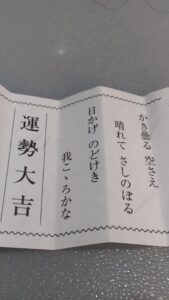 かき曇る 空さえ
晴れて さしのぼる
日かげ のどけき
我こゝろかな
運勢大吉